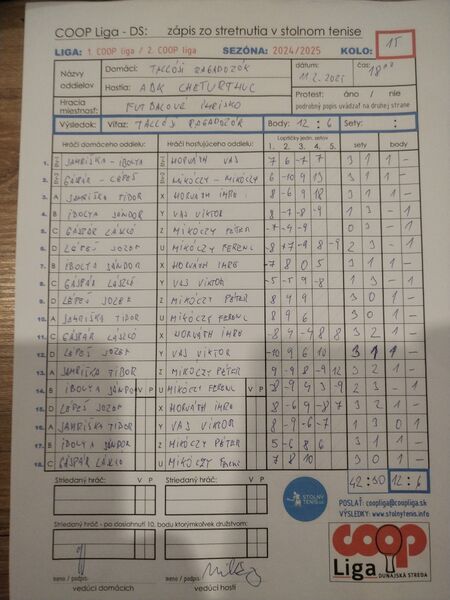 COOP Liga - DS: zápis zo stretnutia v stolnom tenise
LIGA: 1. COOP liga / 2. COOP liga SEZÓNA: 2024/2025 KOLO: 15
Názvy oddielov Domáci: TALLÓSI ZAGADOZÓK dátum: 11.2.2025 čas: 18⁰⁰
Hostia: ABK CHETVRTHUC Protest: áno / nie
Hracia miestnosť: FUTBALOVÉ IHRISKO podrobný popis uvádzať na druhej strane
Výsledok: Víťaz: TALLÓSI RAGADOZÓK Body: 12 : 6 Sety: :
Hráči domáceho oddielu: Hráči hosťujúceho oddielu: Loptičky jedn. setov: 1. 2. 3. 4. 5. sety body
1. JAHRIŠKA - IBOLYA HORVÁTH VAS 7 6 -7 7 3 1 1 -
2. GÁSPÁR - LÉPEŠ MIKÓCZY - MIKÓCZY 6 -10 9 13 3 1 1 -
3. A JAHRIŠKA TIBOR X HORVÁTH IMRE 8 -6 9 18 3 1 1 -
4. B IBOLYA SÁNDOR Y VAS VIKTOR 8 -7 -8 -9 1 3 - 1
5. C GÁSPÁR LÁSZLÓ Z MIKÓCZY PÉTER -7 -4 -9 0 3 - 1
6. D LÉPEŠ JOZEF U MIKÓCZY FERENC -8 +7 -9 8 -9 2 3 - 1
7. B IBOLYA SÁNDOR X HORVÁTH IMRE -7 8 0 5 3 1 1 -
8. C GÁSPÁR LÁSZLÓ Y VAS VIKTOR -5 -5 9 -8 1 3 - 1
9. D LÉPEŠ JOZEF Z MIKÓCZY PÉTER 8 4 9 3 0 1 -
10. A JAHRIŠKA TIBOR U MIKÓCZY FERENC 8 9 6 3 0 1 -
11. C GÁSPÁR LÁSZLÓ X HORVÁTH IMRE -8 4 -4 8 8 3 2 1 -
12. D LÉPEŠ JOZEF Y VAS VIKTOR -10 9 6 10 3 1 1 -
13. A JAHRIŠKA TIBOR Z MIKÓCZY PÉTER 9 -9 8 -9 12 3 2 1 -
14. B IBOLYA SÁNDOR V P U MIKÓCZY FERENC V P -8 -9 4 3 -9 2 3 - 1
15. D LÉPEŠ JOZEF X HORVÁTH IMRE 8 -6 9 -8 7 3 2 1 -
16. A JAHRIŠKA TIBOR Y VAS VIKTOR 8 -9 -6 -7 1 3 0 1
17. B IBOLYA SÁNDOR Z MIKÓCZY PÉTER 5 -6 8 6 3 1 1 -
18. C GÁSPÁR LÁSZLÓ U MIKÓCZY FERENC 7 8 10 3 0 1 -
42 : 30 12 : 6
Striedaný hráč: V P Striedaný hráč: V P
STOLNÝ TENIS
POSLAŤ: coopliga@coopliga.sk
VÝSLEDKY: www.stolnytenis.info
Striedaný hráč - po dosiahnutí 10. bodu ktorýmkoľvek družstvom:
coop Liga
DUNAJSKÁ STREDA
meno / podpis meno / podpis
vedúci domácich vedúci hostí